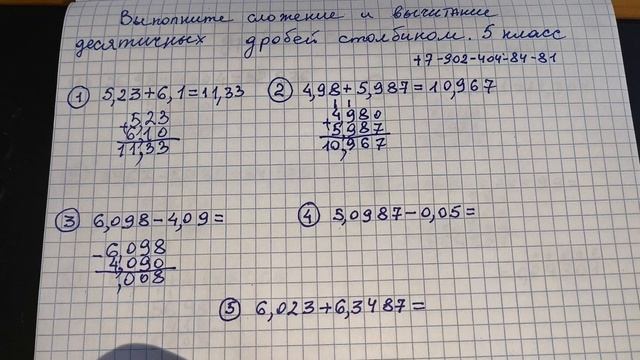 Выполните сложение и вычитание
десятичных дробей столбиком. 5 класс
+7-902-404-84-81
① 5,23+6,1=11,33
5,23
+6,10
11,33
② 4,98+5,987=10,967
1 1
4,980
+5,987
10,967
③ 6,098-4,09=
-6,098
4,090
,008
④ 3,0987-0,05=
⑤ 6,023+6,3487=